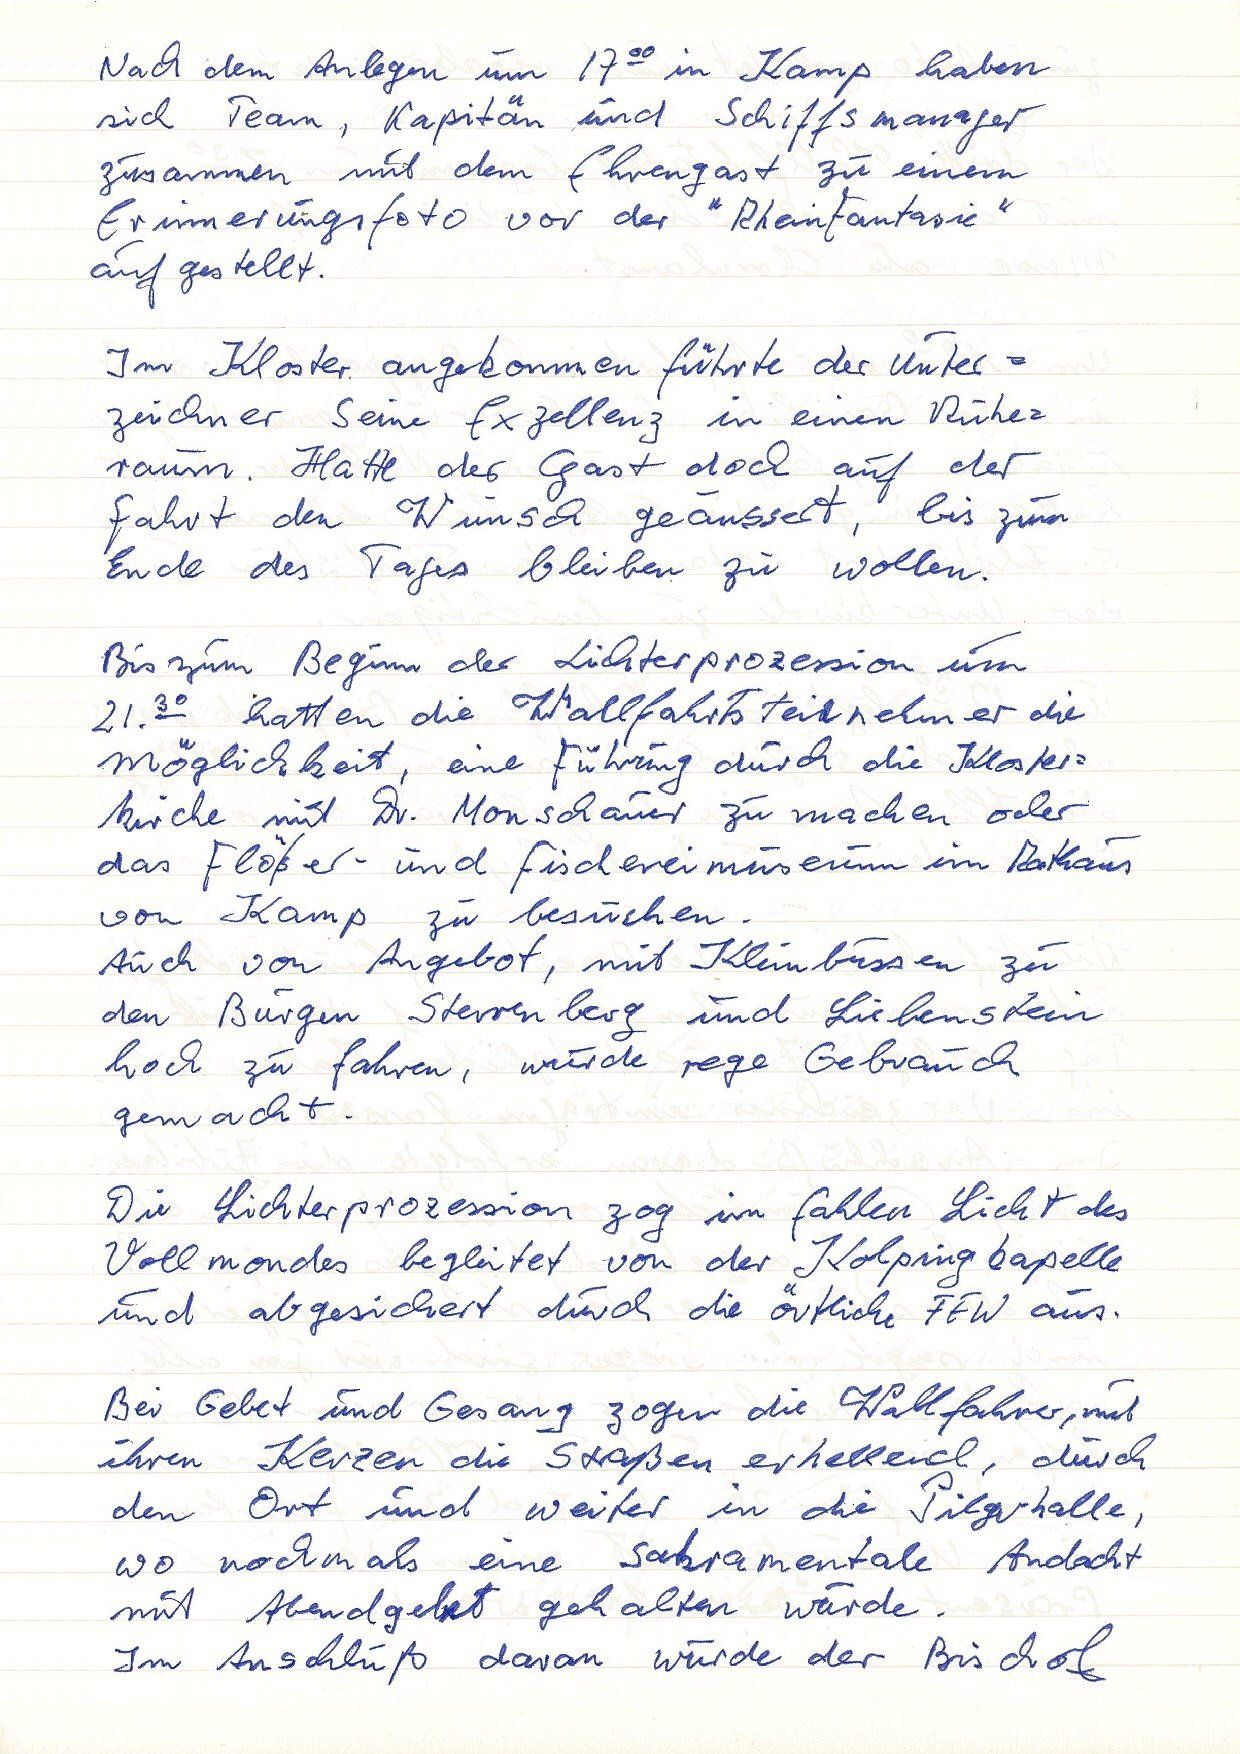 Nach dem Anlegen um 17⁰⁰ in Kamp haben
sich Team, Kapitän und Schiffsmanager
zusammen mit dem Ehrengast zu einem
Erinnerungsfoto vor der "Rheinfantasie"
aufgestellt.
Im Kloster angekommen führte der Unter=
zeichner Seine Exzellenz in einen Ruhe=
raum. Hatte der Gast doch auf der
Fahrt den Wunsch geäussert, bis zum
Ende des Tages bleiben zu wollen.
Bis zum Beginn der Lichterprozession um
21.³⁰ hatten die Wallfahrtsteilnehmer die
Möglichkeit, eine Führung durch die Kloster=
kirche mit Dr. Monschauer zu machen oder
das Flößer- und Fischereimuseum im Rathaus
von Kamp zu besuchen.
Auch von Angebot, mit Kleinbussen zu
den Burgen Sterrenberg und Liebenstein
hoch zu fahren, wurde rege Gebrauch
gemacht.
Die Lichterprozession zog im fahlen Licht des
Vollmondes begleitet von der Kolpingkapelle
und abgesichert durch die örtliche FFW aus.
Bei Gebet und Gesang zogen die Wallfahrer, mit
ihren Kerzen die Straßen erhellend, durch
den Ort und weiter in die Pilgerhalle,
wo nochmals eine sakramentale Andacht
mit Abendgebet gehalten wurde.
Im Anschluß daran wurde der Bischof